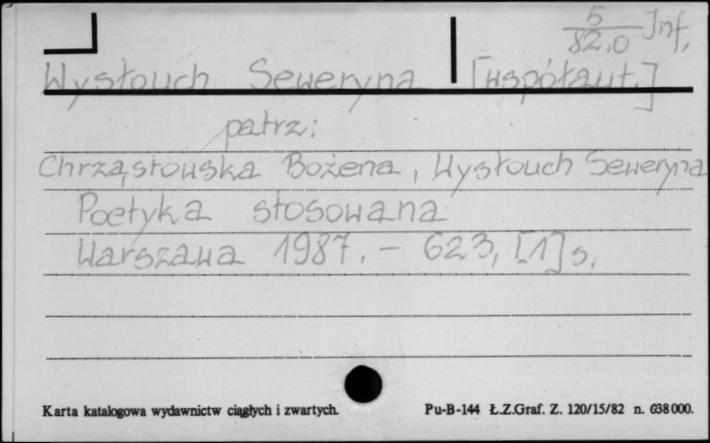 5
82.0 Inf.
Wysłouch Seweryna [współaut.]
patrz:
Chrząstowska Bożena, Wysłouch Seweryna
Poetyka stosowana
Warszawa 1987. - 623, [1] s.
Karta katalogowa wydawnictw ciągłych i zwartych. Pu-B-144 Ł.Z.Graf. Z. 120/15/82 n. 638000.